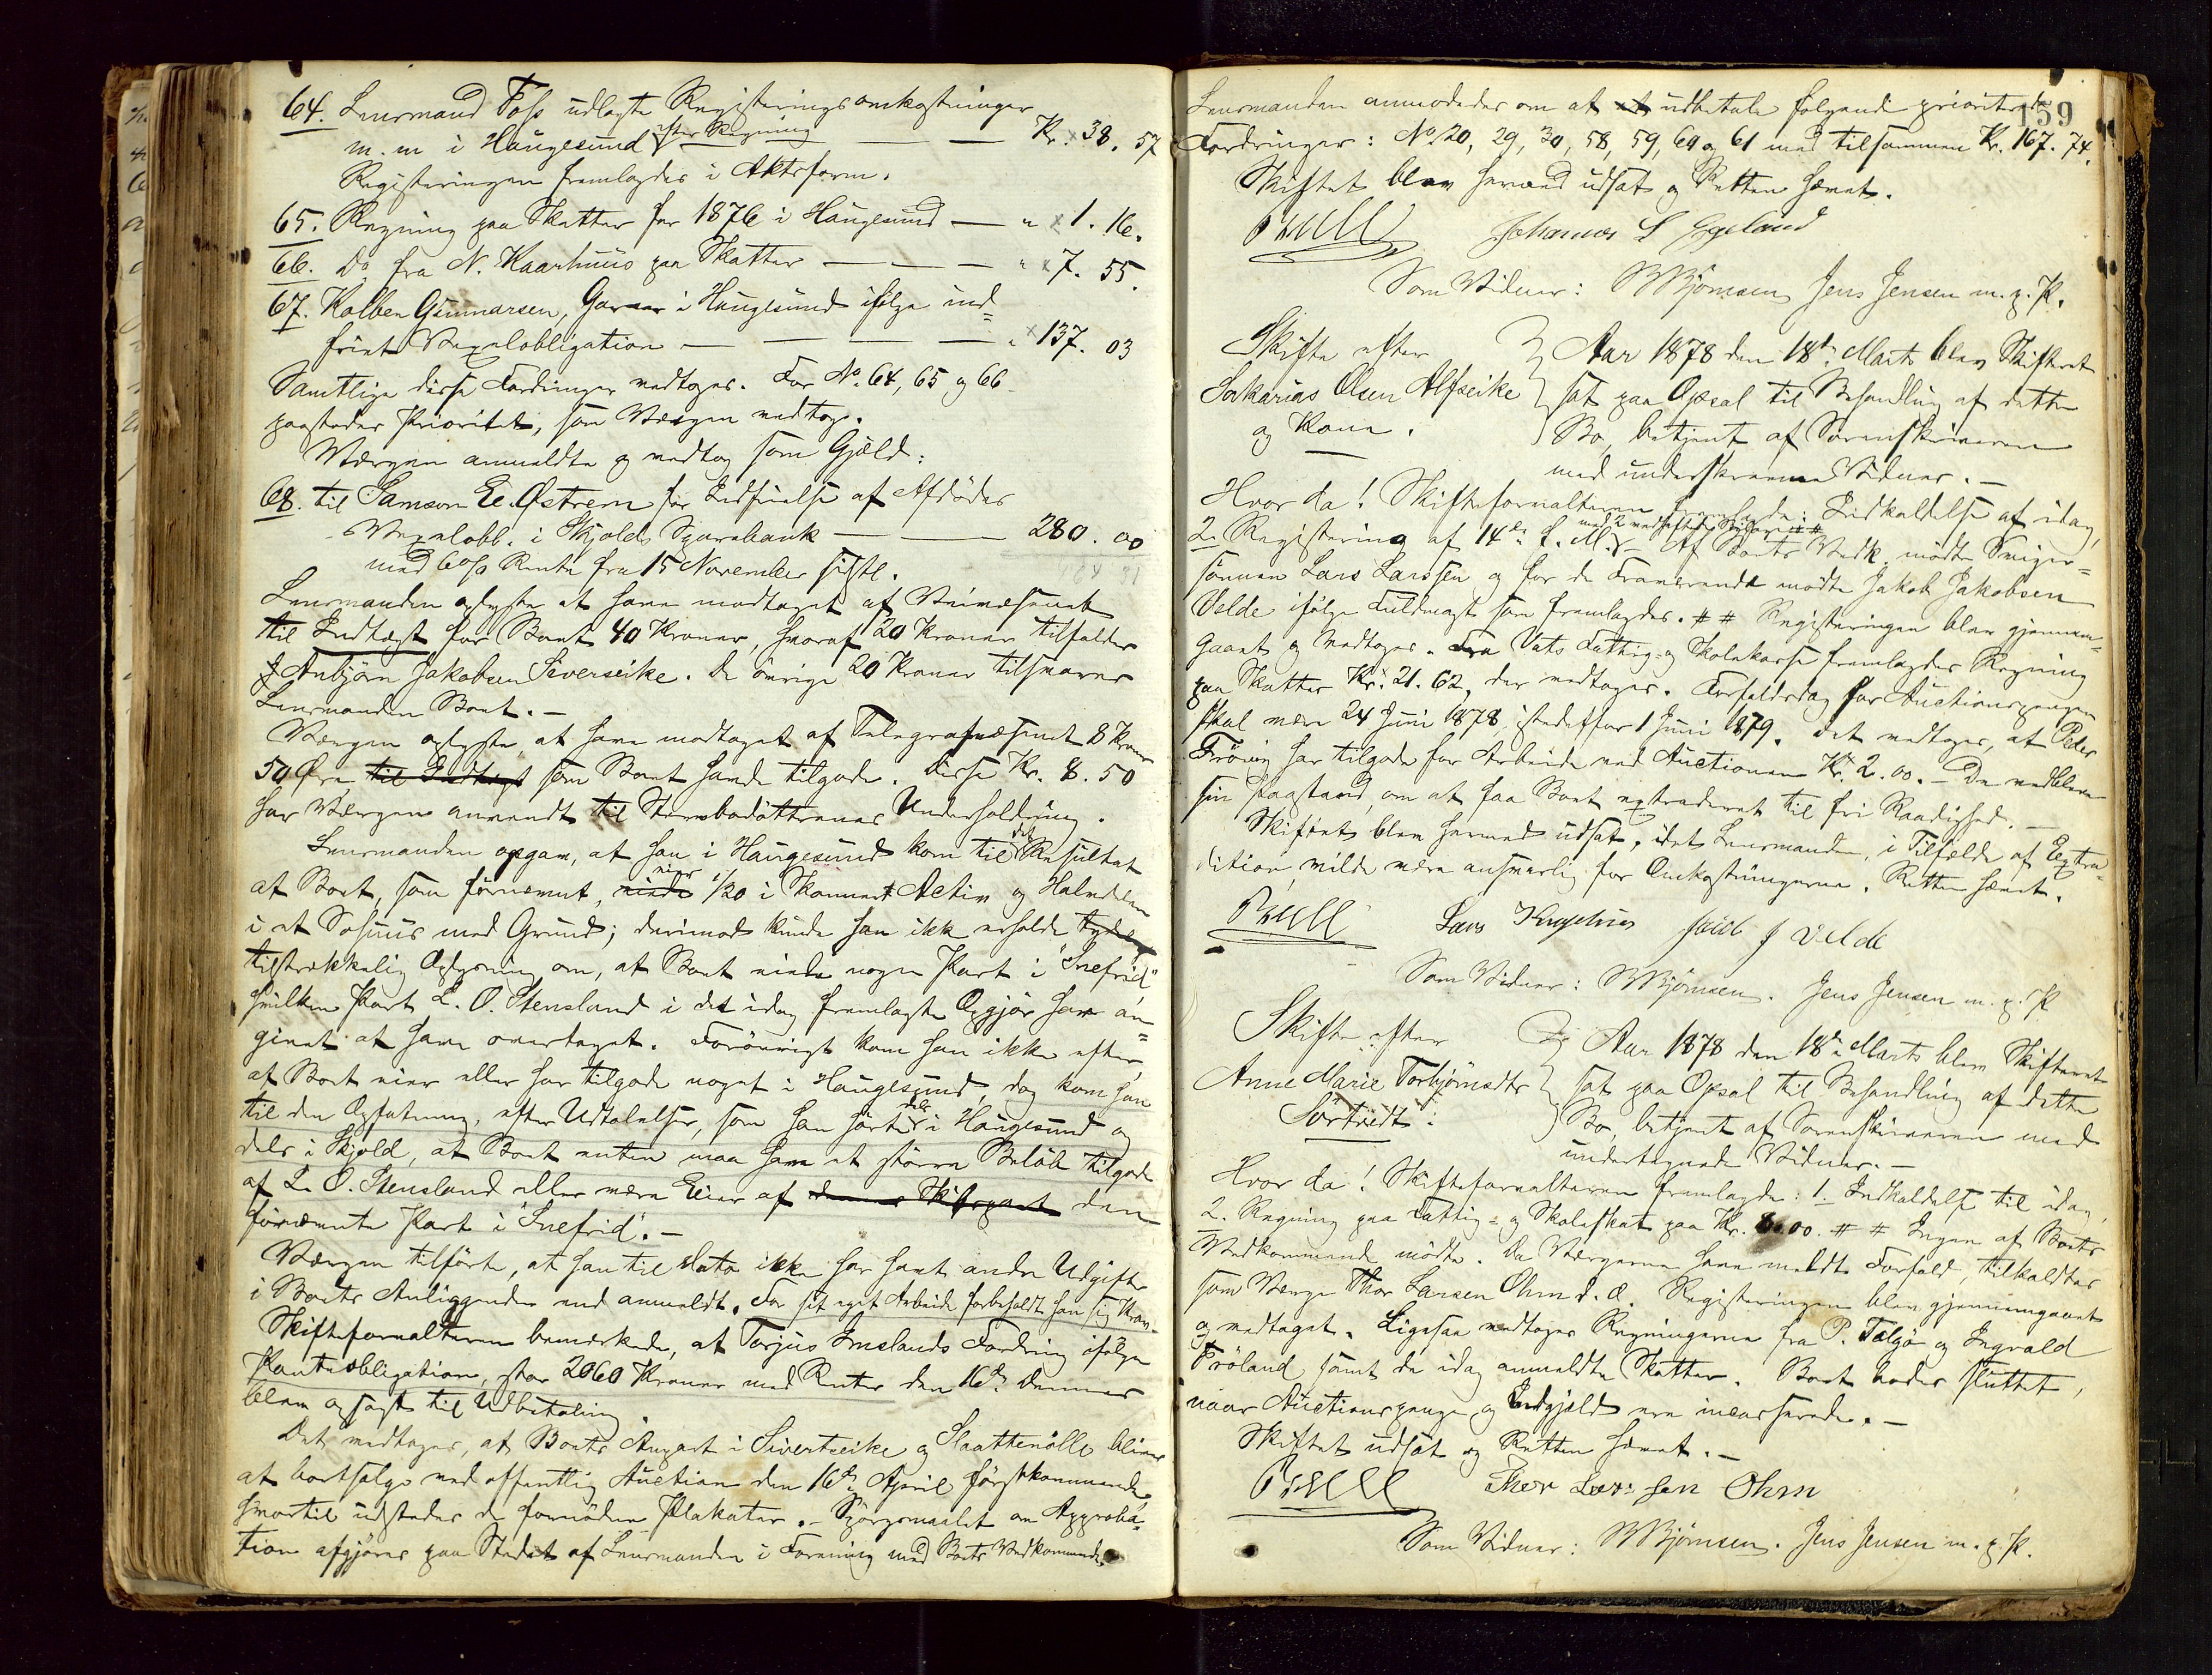 64. Lensmand Foss udlagte Registeringsomkostninger
m. m i Haugesund efter Regning — — Kr. 38. 57
Registeringen fremlagdes i Aktsform.
65. Regning paa Skatter for 1876 i Haugesund — " 1. 16.
66. Do fra N. Kaarhuus paa Skatter — — — " 7. 55.
67. Kolben Gunnarsen, Garver i Haugesund ifølge ind=
friet Vexelobligation — — — — " 137. 03
Samtlige disse Fordringer vedtoges. For No. 64, 65 og 66
paastodes Prioritet, som Værgen vedtog.
Værgen anmeldte og vedtog som Gjæld:
68. til Samson El. Østrem for Indfrielse af Afdødes
Vexelobl. i Skjolds Sparebank — — 280. 00
med 6% Rente fra 15 November sidstl.
Lensmanden oplyste at have modtaget af Veivæsenet
til Indtægt for Boet 40 Kroner, hvoraf 20 Kroner tilfalder
Anbjörn Jakobsen Siverseike. De øvrige 20 Kroner tilsvarer
Lensmanden Boet. —
Værgen oplyste, at have modtaget af Telegrafvæsenet 8 Kroner
50 Øre til Indtægt som Boet havde tilgode. Disse Kr. 8. 50
har Værgen anvendt til Stervbodøttrenes Underholdning.
Lensmanden opgav, at han i Haugesund kom til det Resultat
at Boet, som førnævnt, eiede eier 1/20 i Skonnert Activ og Halvdelen
i et Søhuus med Grund; derimod kunde han ikke erholde
tilstrækkelig Oplysning om, at Boet eiede nogen Part i "Snefrid"
hvilken Part L. O. Stensland i det idag fremlagte Opgjør har an=
givet at have overtaget. Forøvrigt kom han ikke efter,
at Boet eier eller har tilgode noget i Haugesund, dog kom han
til den Opfatning, efter Udtalelser, som han hørte dels i Haugesund og
dels i Skjold, at Boet enten maa have et større Beløb tilgode
af L. O. Stensland eller være Eier af denne Skibspart den
førnævnte Part i "Snefrid". —
Værgen tilførte, at han til Dato ikke har havt andre Udgifter
i Boets Anliggender end anmeldt. For sit eget Arbeide forbeholdt han sig Krav.
Skifteforvalteren bemærkede, at Torjus Imslands Fordring ifølge
Panteobligation, stor 2060 Kroner med Renter den 16de Dennes
blev opsagt til Udbetaling.
Det vedtoges, at Boets Anpart i Sivertseike og Slaattenølle bliver
at bortsælge ved offentlig Auction den 16de April førstkommende,
hvortil udstedes de fornødne Plakater. — Spørgsmaalet om Approba=
tion afgjøres paa Stedet af Lensmanden i Forening med Boets Vedkommende.
159
Lensmanden anmodedes om at udbetale følgende prioriterede
Fordringer: No. 20, 29, 30, 58, 59, 60 og 61 med tilsammen Kr. 167. 74.
Skiftet blev herved udsat og Retten hævet.
Johannes L Eggeland
Som Vidner: M Bjørnsen Jens Jensen m. p. P.
Skifte efter
Sakarias Olsen Alfseike
og Kone.
Aar 1878 den 18de Marts blev Skifteret
sat paa Opsal til Behandling af dette
Bo, betjent af Sorenskriveren
med underskrevne Vidner. —
Hvor da! Skifteforvalteren fremlagde: Indkaldelse af idag,
2. Registering af 14de d. M. med 2 vedheftede Bilag. Af Boets Vedk. mødte Sviger=
sønnen Lars Larssen og for de Fraværende mødte Jakob Jakobsen
Velde ifølge Fuldmagt som fremlagdes. # # Registeringen blev gjennem=
gaaet og vedtoges. Fra Vats Fattig- og Skolekasse fremlagdes Regning
paa Skatter Kr. 21. 62, der vedtoges. Forfaldsdag for Auctionspengene
skal være 24 Juni 1878, istedetfor 1 Juni 1879. Det vedtoges, at Peder
Frøvig har tilgode for Arbeide ved Auctionen Kr. 2. 00. — De vedbleve
sin Paastand, om at faa Boet extraderet til fri Raadighed. —
Skiftet blev hermed udsat, idet Lensmanden, i Tilfælde af Extra=
dition, vilde være ansvarlig for Omkostningerne. Retten hævet.
Lars jacob J Velde
Som Vidner: M Bjørnsen. Jens Jensen m. p. P
Skifte efter
Anne Marie Torbjørnsdtr
Sørtvedt.
Aar 1878 den 18de Marts blev Skifteret
sat paa Opsal til Behandling af dette
Bo, betjent af Sorenskriveren med
undertegnede Vidner. —
Hvor da! Skifteforvalteren fremlagde: 1. Indkaldelse til idag,
2. Regning paa Fattig- og Skoleskat paa Kr. 8.00. # # Ingen af Boets
Vedkommende mødte. Da Værgerne have meldt Forfald, tilkaldtes
som Værge Thor Larsen Ohm d. æ. Registeringen blev gjennemgaaet
og vedtaget. Ligesaa vedtoges Regningerne fra P. Tælgø og Ingvald
Frøland samt de idag anmeldte Skatter. Boet bødes sluttet,
naar Auctionspenge og Indgjæld ere incasserede. —
Skiftet udsat og Retten hævet. —
Thor Larsen Ohm
Som Vidner: M Bjørnsen. Jens Jensen m. p. P.